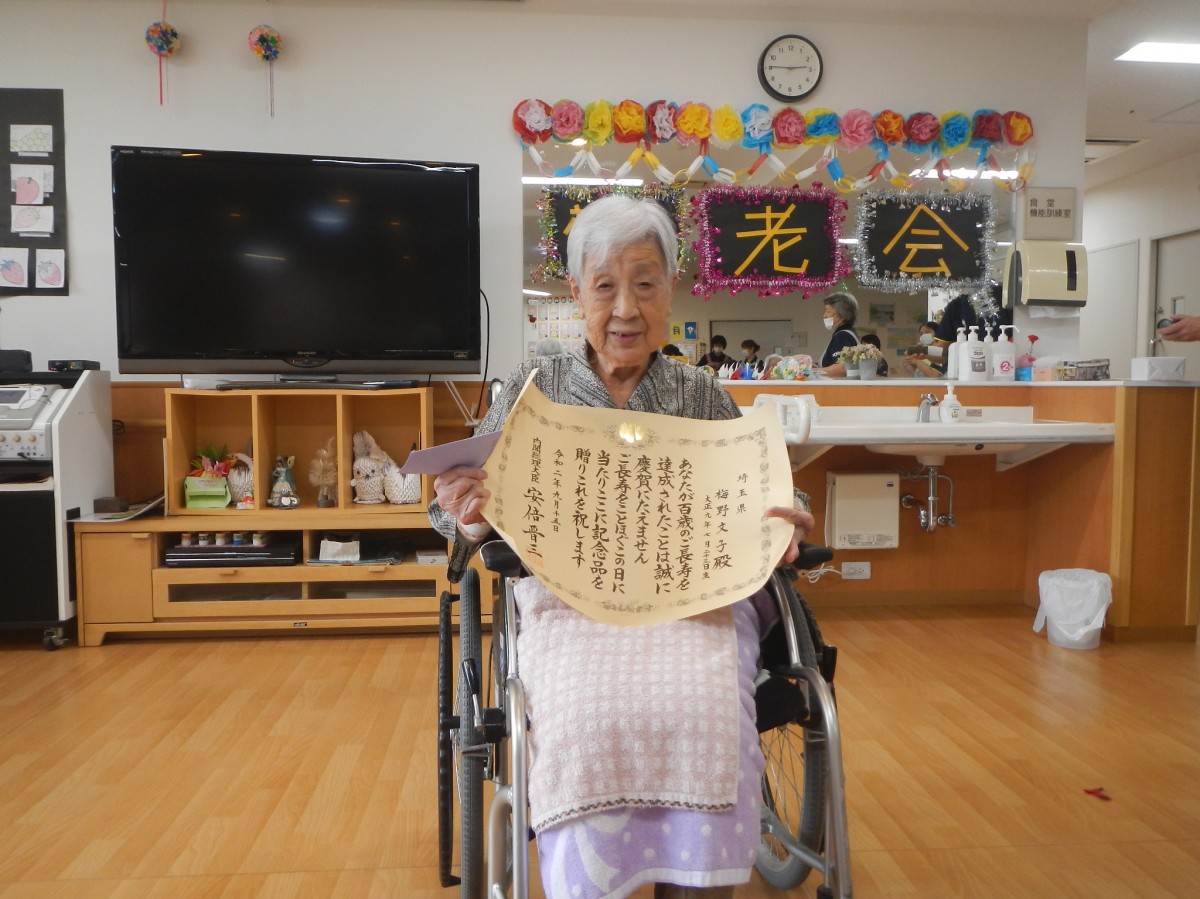 老
会
食堂
機能訓練室
埼玉県
梅野文子殿
大正九年七月二十三日生
あなたが百歳のご長寿を
達成されたことは誠に
慶賀にたえません
ご長寿をことほぐこの日に
当たりここに記念品を
贈りこれを祝します
令和二年九月十五日
内閣総理大臣 安倍晋三